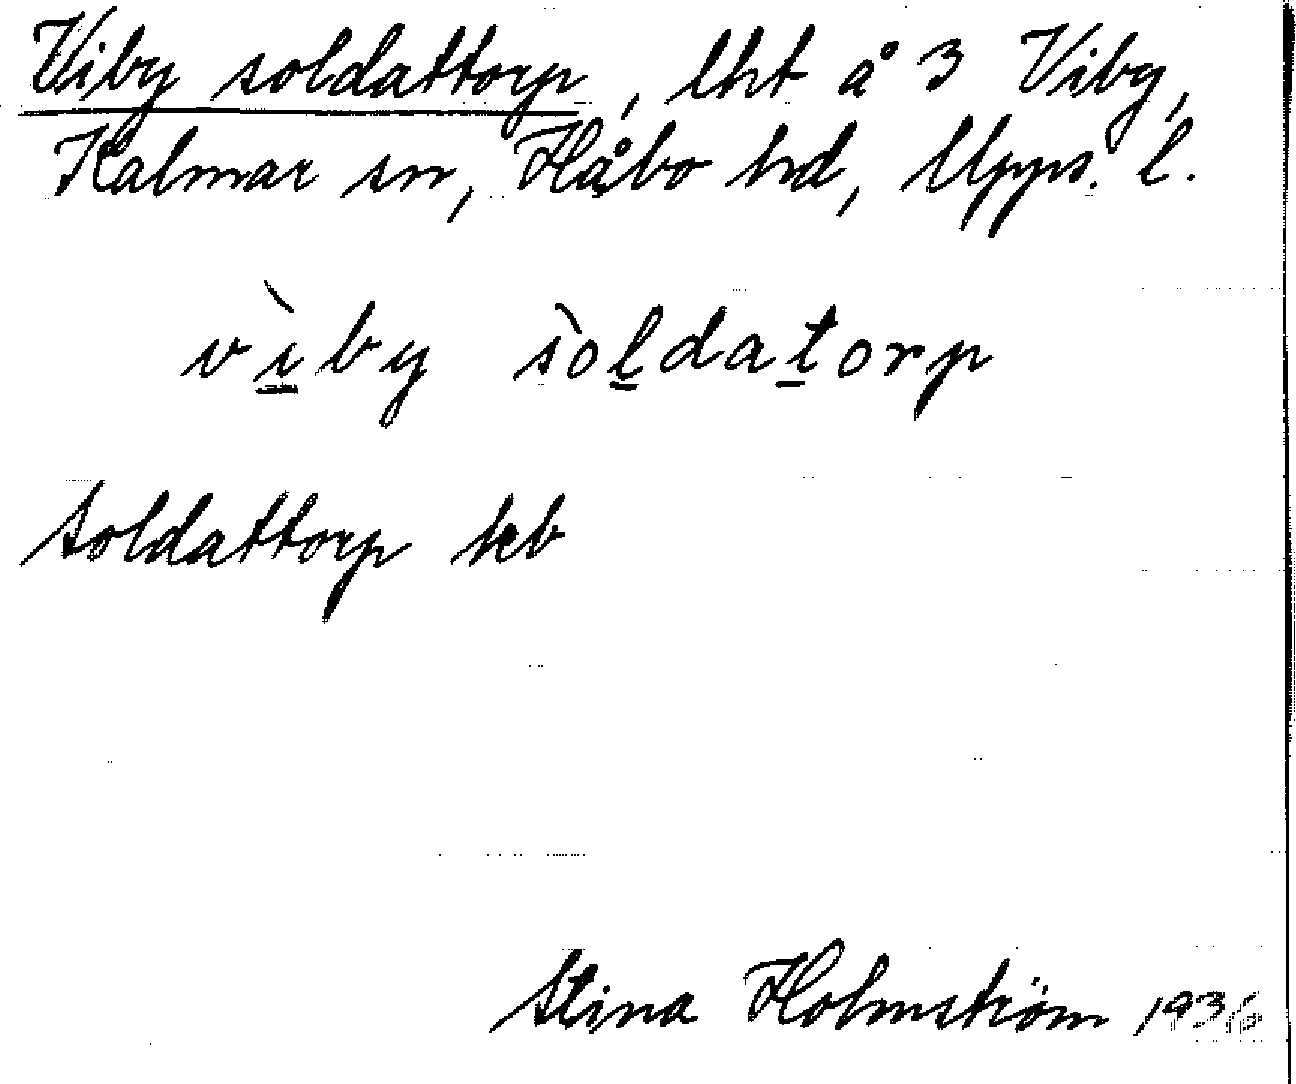 Viby soldattorp, lht å 3 Viby,
Kalmar sn, Håbo hd, Upps. l.
vìby sòldatorp
Soldattorp kb
Stina Holmström 1936